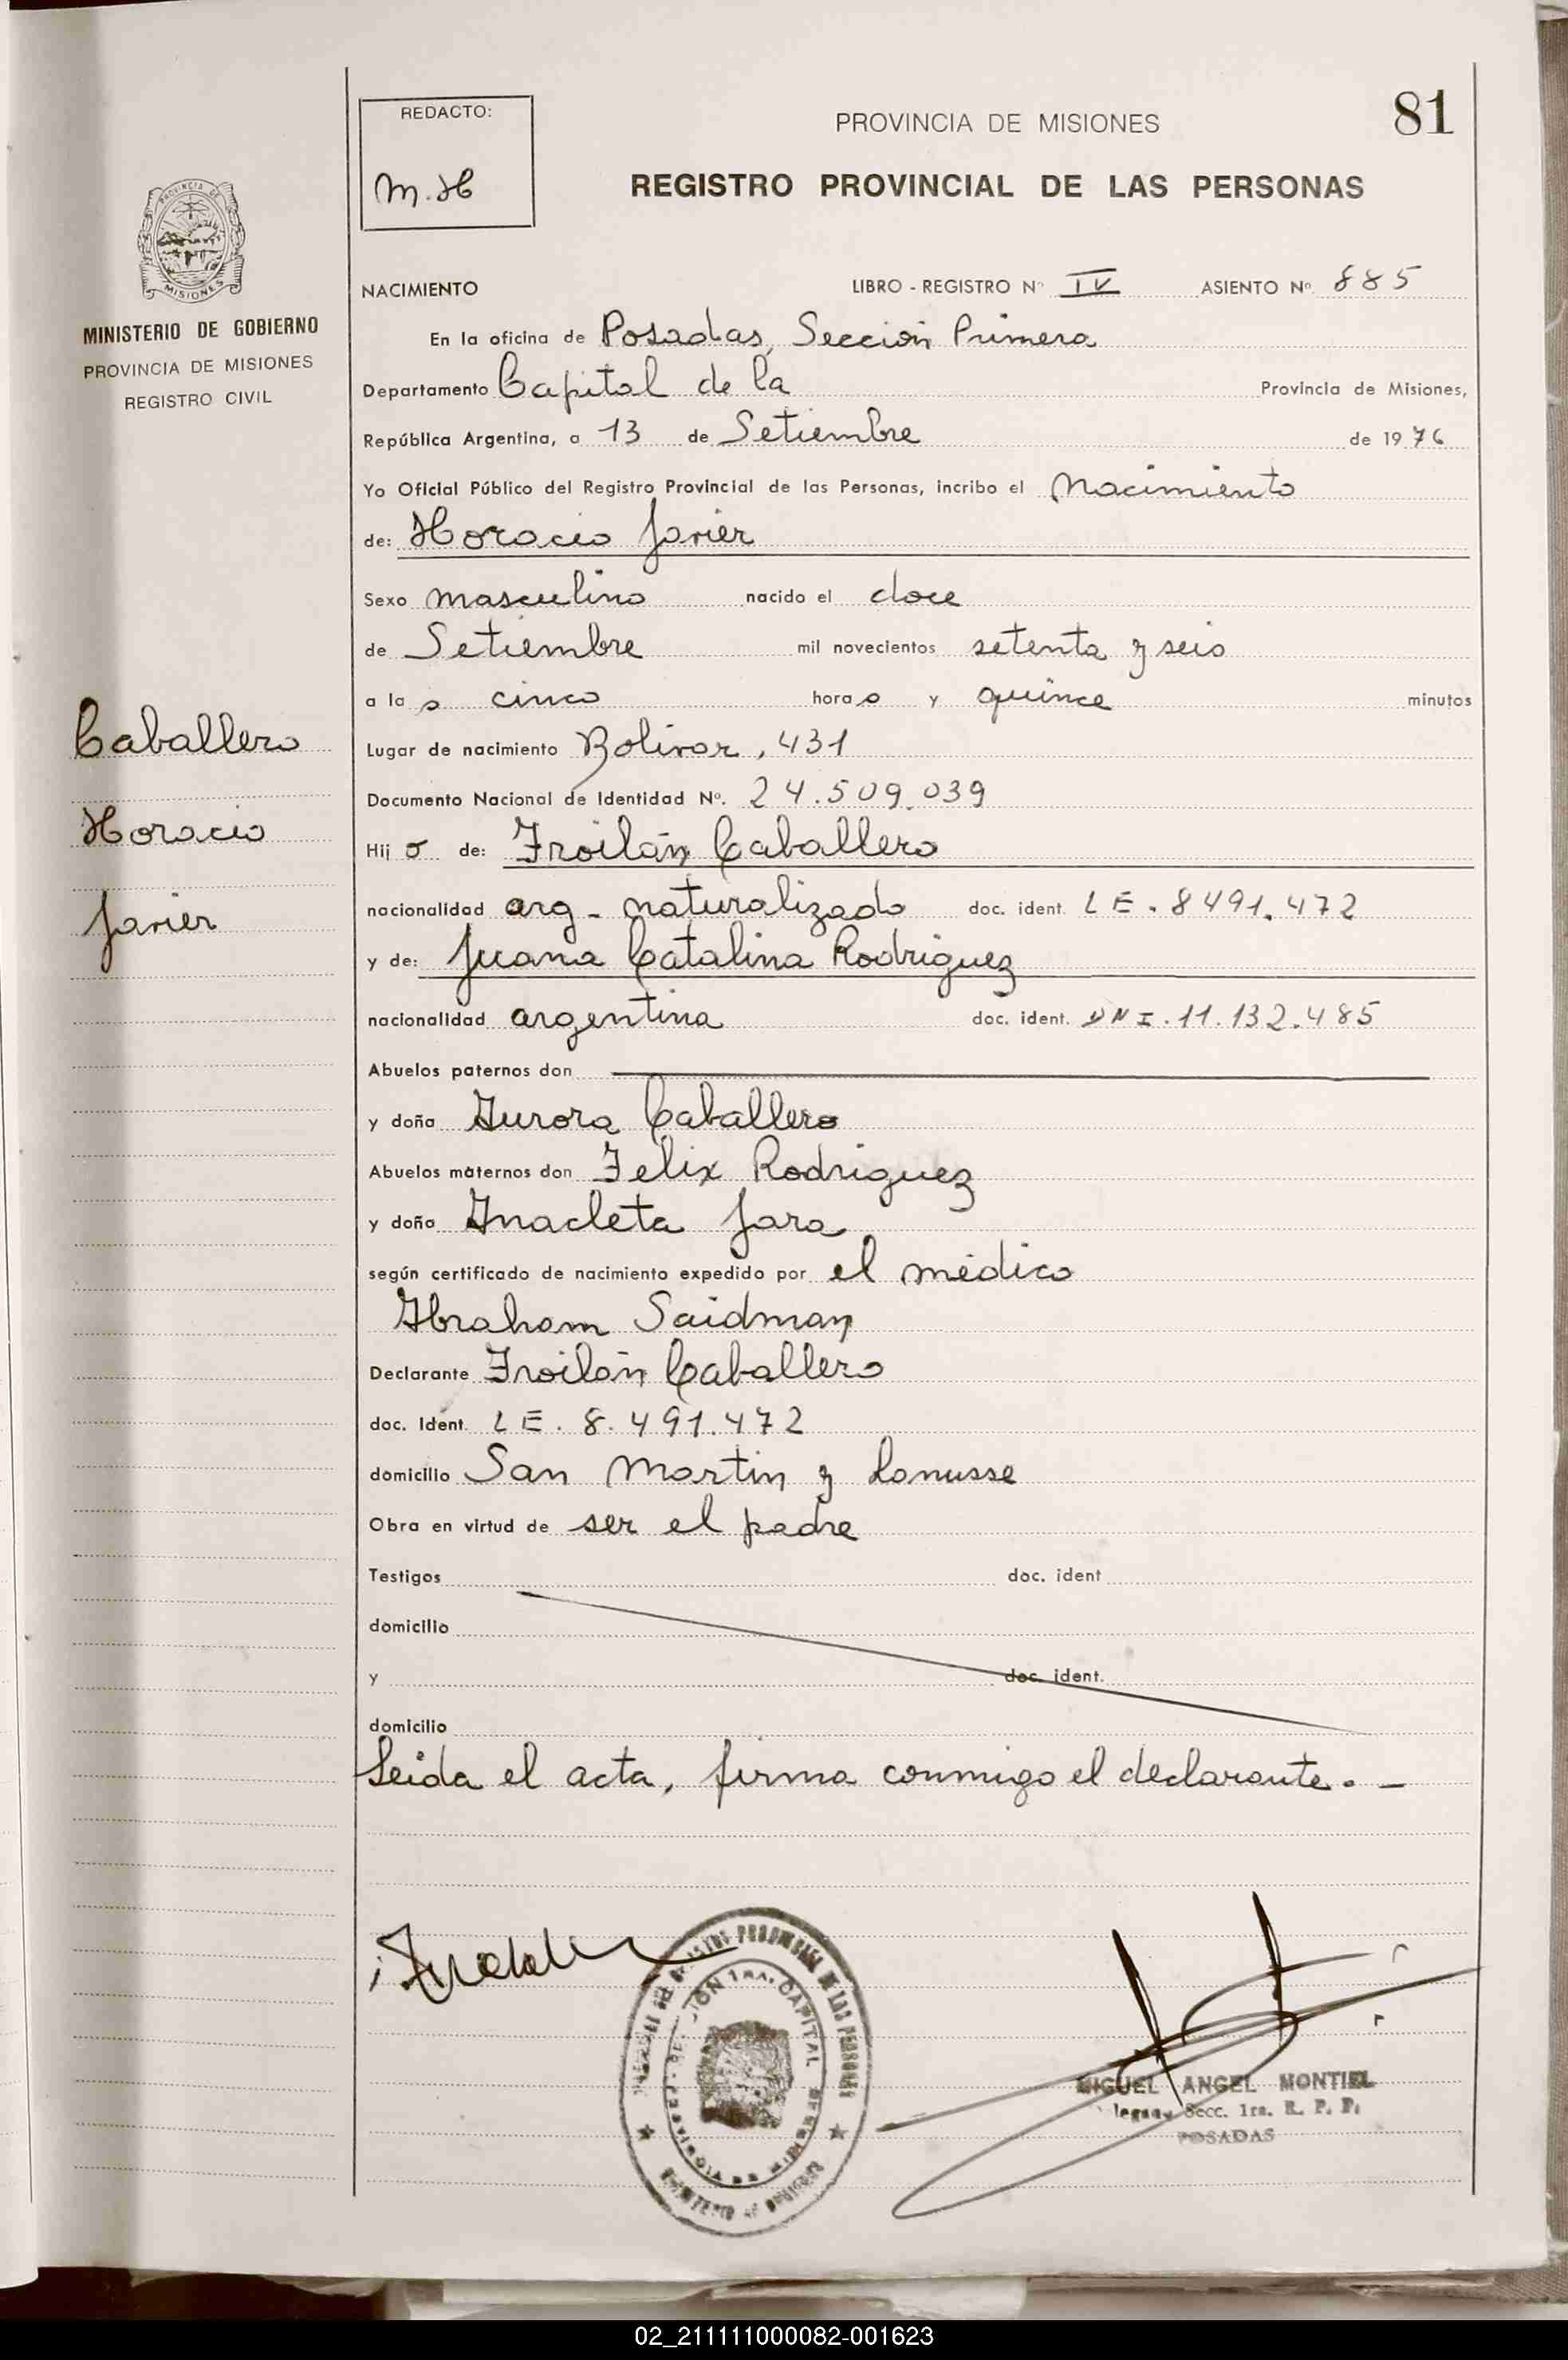 81
REDACTO:
M.H
PROVINCIA DE MISIONES
REGISTRO PROVINCIAL DE LAS PERSONAS
PROVINCIA DE
MISIONES
MINISTERIO DE GOBIERNO
PROVINCIA DE MISIONES
REGISTRO CIVIL
Caballero
Horacio
Javier
NACIMIENTO LIBRO - REGISTRO Nº IV ASIENTO Nº 885
En la oficina de Posadas, Sección Primera
Departamento Capital de la Provincia de Misiones,
República Argentina, a 13 de Setiembre de 1976
Yo Oficial Público del Registro Provincial de las Personas, incribo el Nacimiento
de: Horacio Javier
Sexo masculino nacido el doce
de Setiembre mil novecientos setenta y seis
a las cinco horas y quince minutos
Lugar de nacimiento Bolivar, 431
Documento Nacional de Identidad Nº. 24.509.039
Hijo de: Froilán Caballero
nacionalidad arg - naturalizado doc. ident. LE. 8491.472
y de: Juana Catalina Rodriguez
nacionalidad argentina doc. ident. DNI. 11.132.485
Abuelos paternos don
y doña Aurora Caballero
Abuelos maternos don Felix Rodriguez
y doña Anacleta Jara
según certificado de nacimiento expedido por el médico
Abraham Saidman
Declarante Froilán Caballero
doc. Ident. LE. 8.491.472
domicilio San Martin y Lanusse
Obra en virtud de ser el padre
Testigos doc. ident
domicilio
y doc. ident.
domicilio
Leida el acta, firma conmigo el declarante. -
MIGUEL ANGEL MONTIEL
Secc. 1ra. R. P. P.
POSADAS
02_211111000082-001623